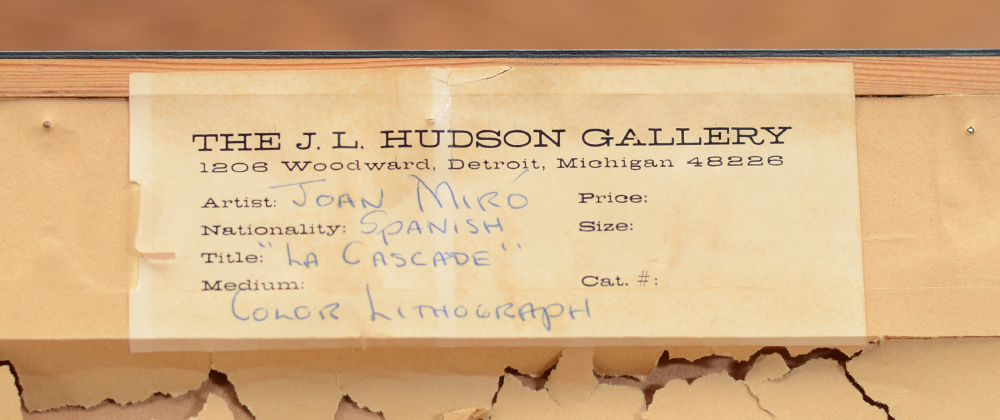 THE J. L. HUDSON GALLERY
1206 Woodward, Detroit, Michigan 48226
Artist: JOAN MIRÓ Price:
Nationality: SPANISH Size:
Title: "LA CASCADE"
Medium: Cat. #:
COLOR LITHOGRAPH